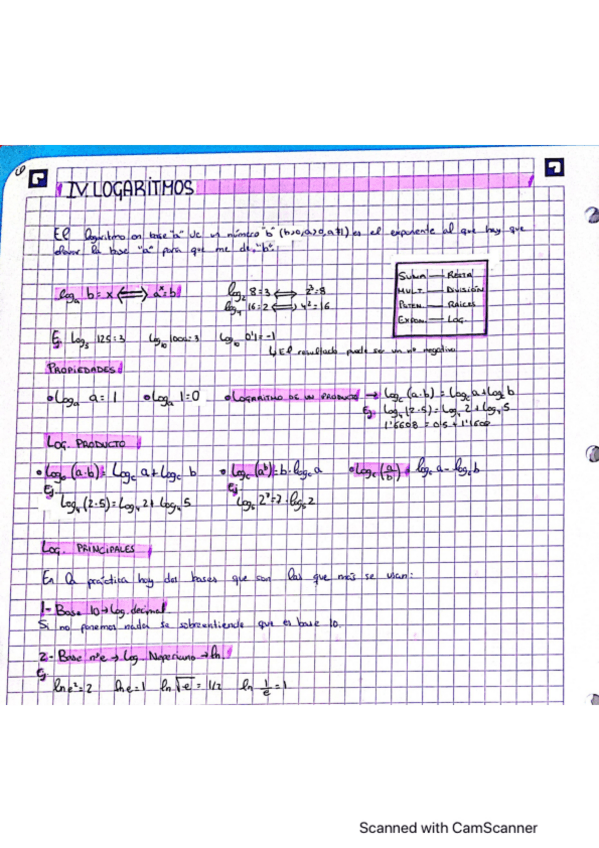 IV. LOGARITMOS
El logaritmo en base "a" de un número "b" (b>0, a>0, a≠1) es el exponente al que hay que
elevar la base "a" para que me de "b".
logₐ b = x ⟺ aˣ = b
log₂ 8 = 3 ⟺ 2³ = 8
log₄ 16 = 2 ⟺ 4² = 16
SUMA — RESTA
MULT. — DIVISIÓN
POTEN. — RAICES
EXPON. — LOG.
Ej log₅ 125 = 3 log₁₀ 1000 = 3 log₁₀ 0'1 = -1
↳ El resultado puede ser un nº negativo
PROPIEDADES
• logₐ a = 1 • logₐ 1 = 0 • LOGARITMO DE UN PRODUCTO → log_c (a·b) = log_c a + log_c b
Ej log₄ (2·5) = log₄ 2 + log₄ 5
1'6608 = 0'5 + 1'1608
LOG. PRODUCTO
• log_c (a·b) = log_c a + log_c b • log_c (aᵇ) = b·log_c a • log_c (a/b) = log_c a - log_c b
Ej log₄ (2·5) = log₄ 2 + log₄ 5 Ej
LOG. PRINCIPALES
En la práctica hay dos bases que son las que más se usan:
1- Base 10 → log. decimal
Si no ponemos nada se sobrentiende que es base 10.
2- Base nº e → log. Neperiano → ln.
Ej
ln e² = 2 ln e = 1 ln √e = 1/2 ln 1/e = 1
Scanned with CamScanner